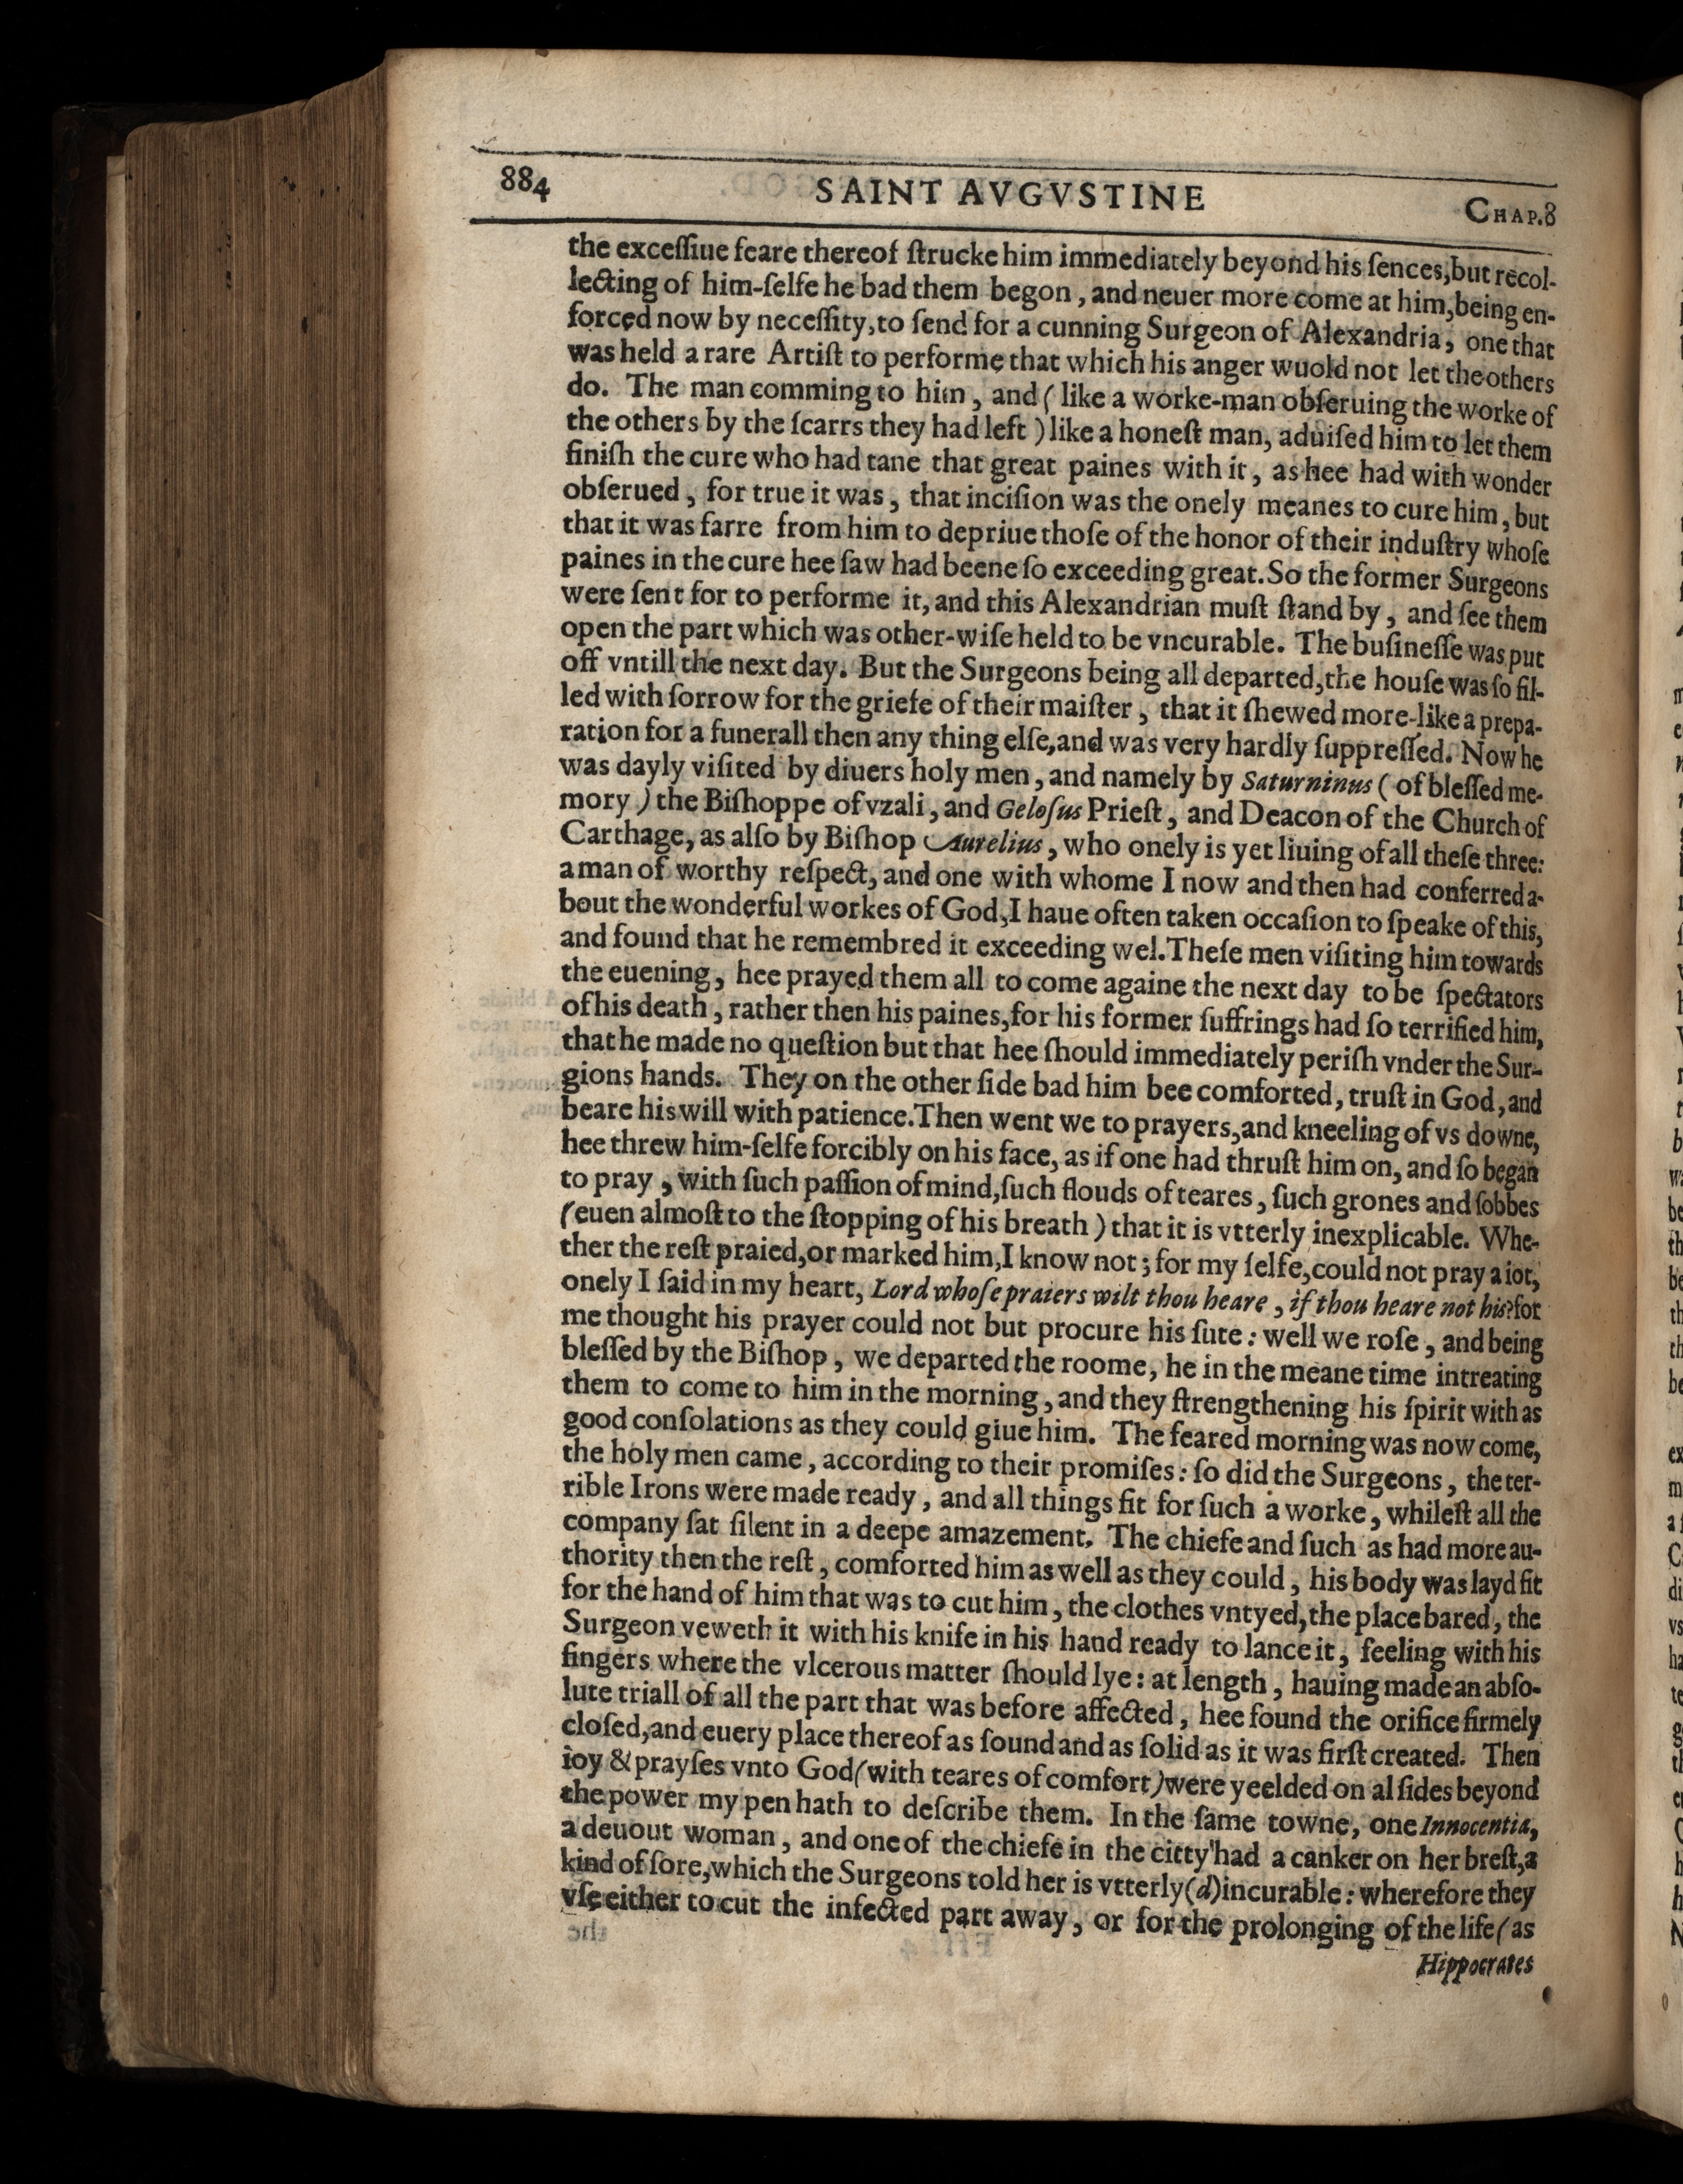 884
SAINT AVGVSTINE
CHAP.8
the exceſſiue feare thereof ſtrucke him immediately beyond his ſences, but recol-
lecting of him-ſelfe he bad them begon, and neuer more come at him, being en-
forced now by neceſſity, to ſend for a cunning Surgeon of Alexandria, one that
was held a rare Artiſt to performe that which his anger wuold not let the others
do. The man comming to him, and (like a worke-man obſeruing the worke of
the others by the ſcarrs they had left) like a honeſt man, aduiſed him to let them
finiſh the cure who had tane that great paines with it, as hee had with wonder
obſerued, for true it was, that inciſion was the onely meanes to cure him, but
that it was farre from him to depriue thoſe of the honor of their induſtry whoſe
paines in the cure hee ſaw had beene ſo exceeding great. So the former Surgeons
were ſent for to performe it, and this Alexandrian muſt ſtand by, and ſee them
open the part which was other-wiſe held to be vncurable. The buſineſſe was put
off vntill the next day. But the Surgeons being all departed, the houſe was ſo fil-
led with ſorrow for the griefe of their maiſter, that it ſhewed more-like a prepa-
ration for a funerall then any thing elſe, and was very hardly ſuppreſſed. Now he
was dayly viſited by diuers holy men, and namely by Saturninus (of bleſſed me-
mory) the Biſhoppe of vzali, and Geloſus Prieſt, and Deacon of the Church of
Carthage, as alſo by Biſhop Aurelius, who onely is yet liuing of all theſe three:
a man of worthy reſpect, and one with whome I now and then had conferred a-
bout the wonderful workes of God, I haue often taken occaſion to ſpeake of this,
and found that he remembred it exceeding wel. Theſe men viſiting him towards
the euening, hee prayed them all to come againe the next day to be ſpectators
of his death, rather then his paines, for his former ſuffrings had ſo terrified him,
that he made no queſtion but that hee ſhould immediately periſh vnder the Sur-
gions hands. They on the other ſide bad him bee comforted, truſt in God, and
beare his will with patience. Then went we to prayers, and kneeling of vs downe,
hee threw him-ſelfe forcibly on his face, as if one had thruſt him on, and ſo began
to pray, with ſuch paſſion of mind, ſuch flouds of teares, ſuch grones and ſobbes
(euen almoſt to the ſtopping of his breath) that it is vtterly inexplicable. Whe-
ther the reſt praied, or marked him, I know not; for my ſelfe, could not pray a iot,
onely I ſaid in my heart, Lord whoſe praiers wilt thou heare, if thou heare not his? for
me thought his prayer could not but procure his ſute: well we roſe, and being
bleſſed by the Biſhop, we departed the roome, he in the meane time intreating
them to come to him in the morning, and they ſtrengthening his ſpirit with as
good conſolations as they could giue him. The feared morning was now come,
the holy men came, according to their promiſes: ſo did the Surgeons, the ter-
rible Irons were made ready, and all things fit for ſuch a worke, whileſt all the
company ſat ſilent in a deepe amazement. The chiefe and ſuch as had more au-
thority then the reſt, comforted him as well as they could, his body was layd fit
for the hand of him that was to cut him, the clothes vntyed, the place bared, the
Surgeon veweth it with his knife in his hand ready to lance it, feeling with his
fingers where the vlcerous matter ſhould lye: at length, hauing made an abſo-
lute triall of all the part that was before affected, hee found the orifice firmely
cloſed, and euery place thereof as ſound and as ſolid as it was firſt created. Then
ioy & prayſes vnto God (with teares of comfort) were yeelded on al ſides beyond
the power my pen hath to deſcribe them. In the ſame towne, one Innocentia,
a deuout woman, and one of the chiefe in the citty had a canker on her breſt, a
kind of ſore, which the Surgeons told her is vtterly (d) incurable: wherefore they
vſe either to cut the infected part away, or for the prolonging of the life (as
Hippocrates